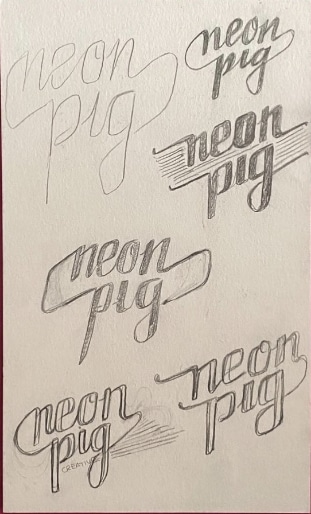 neon
pig
neon
pig
neon
pig
neon
pig
neon
pig
CREATIVE
neon
pig